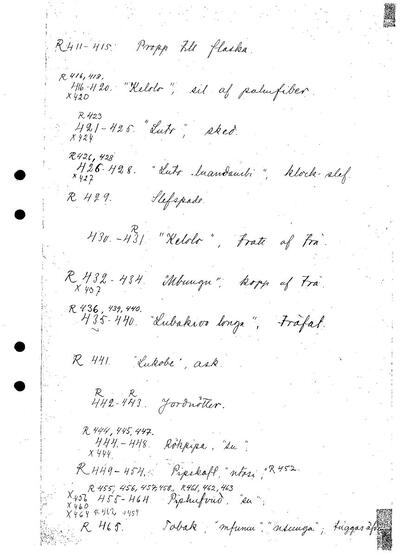 R 411-415. Propp till flaska.
R 416, 418.
416-420. "Kelolo", sil af palmfiber.
X 420
R 423
421-425. "Luto", sked.
X 424
R 426, 428
426-428. "Luto luandambi", klock-slef
X 427
R 429. Slefspade.
R
430.-431. "Kelolo", Trate af Trä.
R 432-434. "Mbungu", kopp af Trä.
X 437
R 436, 439, 440.
435-440. "Lubakwo longa", Träfat.
R 441. "Lukobe", ask.
R R
442-443. Jordnötter.
R 444, 445, 447.
444.-448. Rökpipa, "su".
X 444.
R 449-454. Pipskaft, "ntosi", R 452.
R 455, 456, 457, 458, R 461, 462, 463
X 456 455-464. Piphufvud, "su".
X 460
X 464 R 459
R 465. Tobak, "mfumu", "nsunga",